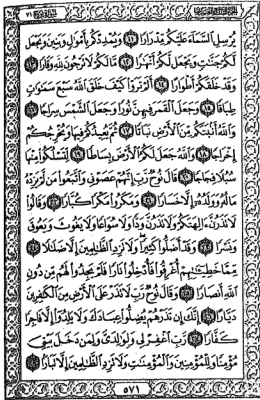 سورة نوح ٧١
يُرْسِلِ السَّمَاءَ عَلَيْكُمْ مِدْرَارًا ١١ وَيُمْدِدْكُمْ بِأَمْوَالٍ وَبَنِينَ وَيَجْعَلْ
لَكُمْ جَنَّاتٍ وَيَجْعَلْ لَكُمْ أَنْهَارًا ١٢ مَا لَكُمْ لَا تَرْجُونَ لِلَّهِ وَقَارًا ١٣
وَقَدْ خَلَقَكُمْ أَطْوَارًا ١٤ أَلَمْ تَرَوْا كَيْفَ خَلَقَ اللَّهُ سَبْعَ سَمَاوَاتٍ
طِبَاقًا ١٥ وَجَعَلَ الْقَمَرَ فِيهِنَّ نُورًا وَجَعَلَ الشَّمْسَ سِرَاجًا ١٦
وَاللَّهُ أَنْبَتَكُمْ مِنَ الْأَرْضِ نَبَاتًا ١٧ ثُمَّ يُعِيدُكُمْ فِيهَا وَيُخْرِجُكُمْ
إِخْرَاجًا ١٨ وَاللَّهُ جَعَلَ لَكُمُ الْأَرْضَ بِسَاطًا ١٩ لِتَسْلُكُوا مِنْهَا
سُبُلًا فِجَاجًا ٢٠ قَالَ نُوحٌ رَبِّ إِنَّهُمْ عَصَوْنِي وَاتَّبَعُوا مَنْ لَمْ يَزِدْهُ
مَالُهُ وَوَلَدُهُ إِلَّا خَسَارًا ٢١ وَمَكَرُوا مَكْرًا كُبَّارًا ٢٢ وَقَالُوا
لَا تَذَرُنَّ آلِهَتَكُمْ وَلَا تَذَرُنَّ وَدًّا وَلَا سُوَاعًا وَلَا يَغُوثَ وَيَعُوقَ
وَنَسْرًا ٢٣ وَقَدْ أَضَلُّوا كَثِيرًا وَلَا تَزِدِ الظَّالِمِينَ إِلَّا ضَلَالًا ٢٤
مِمَّا خَطِيئَاتِهِمْ أُغْرِقُوا فَأُدْخِلُوا نَارًا فَلَمْ يَجِدُوا لَهُمْ مِنْ دُونِ
اللَّهِ أَنْصَارًا ٢٥ وَقَالَ نُوحٌ رَبِّ لَا تَذَرْ عَلَى الْأَرْضِ مِنَ الْكَافِرِينَ
دَيَّارًا ٢٦ إِنَّكَ إِنْ تَذَرْهُمْ يُضِلُّوا عِبَادَكَ وَلَا يَلِدُوا إِلَّا فَاجِرًا
كَفَّارًا ٢٧ رَبِّ اغْفِرْ لِي وَلِوَالِدَيَّ وَلِمَنْ دَخَلَ بَيْتِيَ
مُؤْمِنًا وَلِلْمُؤْمِنِينَ وَالْمُؤْمِنَاتِ وَلَا تَزِدِ الظَّالِمِينَ إِلَّا تَبَارًا ٢٨
٥٧١